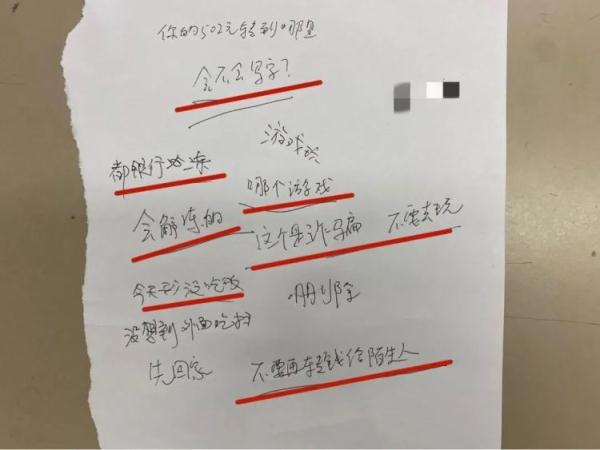 你的502元转到哪里
会不会写字?
游戏
都银行冻
哪个游戏
会解冻的
这个是诈骗 不要去玩
今天没吃饭
删除
没想到外面吃
先回家
不要再转钱给陌生人